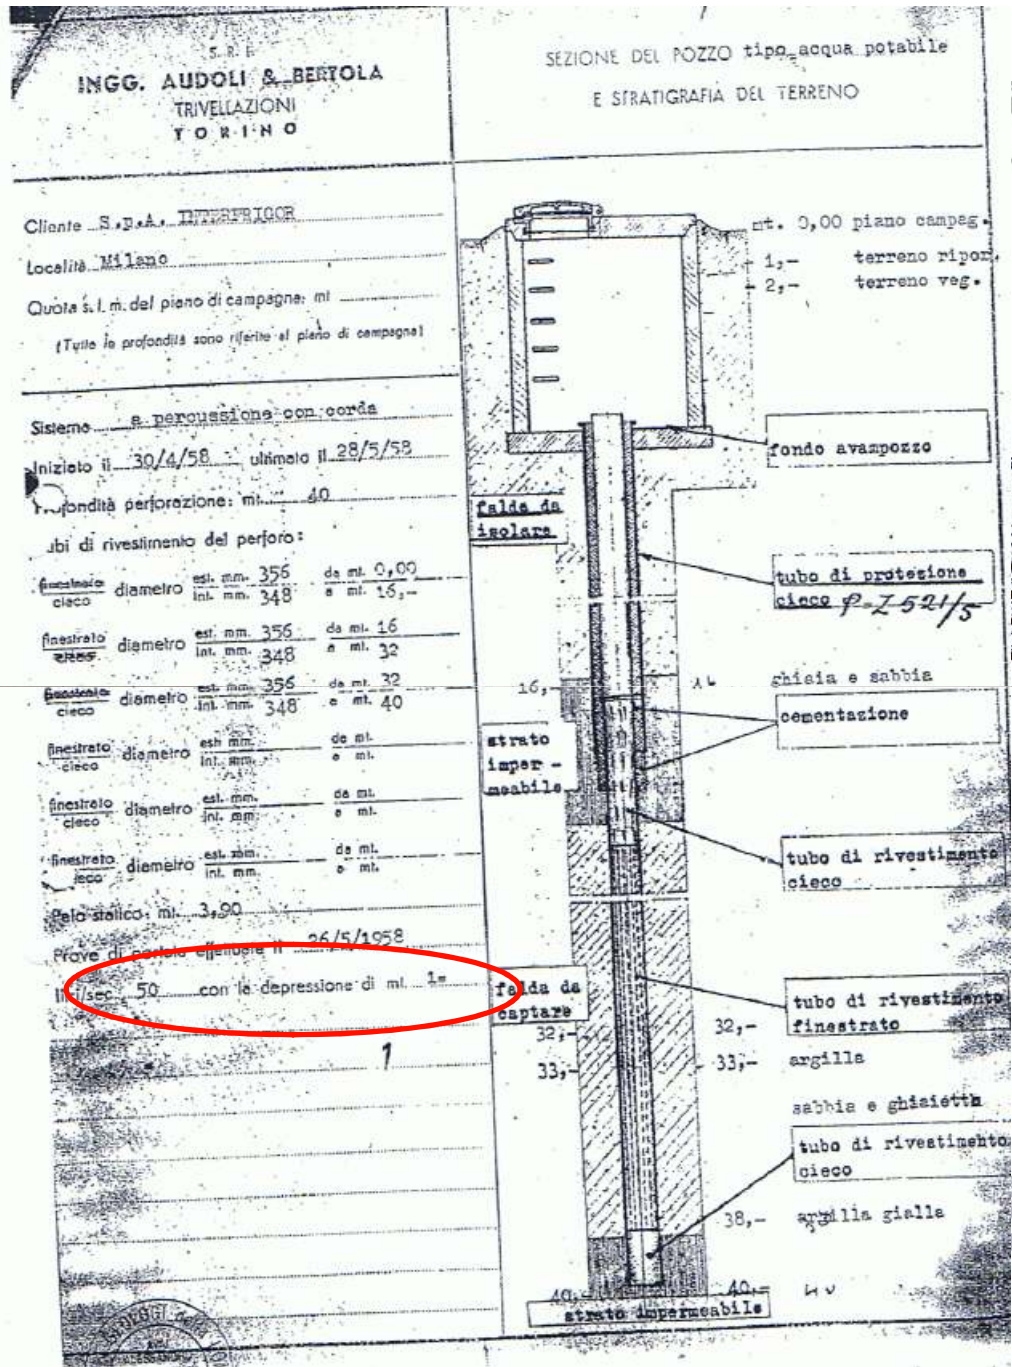 S. R. L.
INGG. AUDOLI & BERTOLA
TRIVELLAZIONI
TORINO
SEZIONE DEL POZZO tipo acqua potabile
E STRATIGRAFIA DEL TERRENO
Cliente S.p.A. INTERFRIGOR
Località Milano
Quota s.l.m. del piano di campagna: ml
(Tutte le profondità sono riferite al piano di campagna)
Sistema a percussione con corda
Iniziato il 30/4/58 ultimato il 28/5/58
Profondità perforazione: ml. 40
Tubi di rivestimento del perforo:
finestrato/cieco diametro est. mm. 356 da ml. 0,00
int. mm. 348 a ml. 16,-
finestrato/cieco diametro est. mm. 356 da ml. 16
int. mm. 348 a ml. 32
finestrato/cieco diametro est. mm. 356 da ml. 32
int. mm. 348 a ml. 40
finestrato/cieco diametro est. mm. da ml.
int. mm. a ml.
finestrato/cieco diametro est. mm. da ml.
int. mm. a ml.
finestrato/cieco diametro est. mm. da ml.
int. mm. a ml.
Pelo statico: ml. 3,90
Prove di portata effettuate il 26/5/1958
litri/sec. 50 con la depressione di ml. 1=
1
mt. 0,00 piano campag.
1,- terreno ripor.
2,- terreno veg.
fondo avampozzo
falda da
isolare
tubo di protezione
cieco
521/5
16,-
16
ghiaia e sabbia
cementazione
strato
imper -
meabile
tubo di rivestimento
cieco
falda da
captare
tubo di rivestimento
finestrato
32,-
32,-
33,-
33,- argilla
sabbia e ghiaietto
tubo di rivestimento
cieco
38,- argilla gialla
40,-
40,-
strato impermeabile